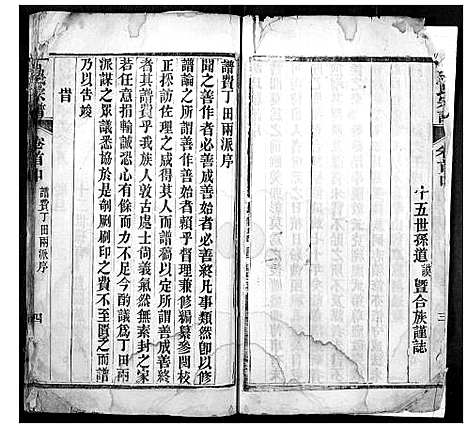 十五世孫道謨暨合族謹誌
三
譜費丁田兩派序
聞之善作者必善成善始者必善終凡事類然卽以修
譜論之所謂善作善始者賴乎督理兼修編纂參閱校
正採訪佐理之咸得其人而譜芻以成所謂善成善終
者其譜費乎我族人敦古處士尚義氣然無甚封之家
若任意捐輸誠恐心有餘而力不足今酌議爲丁田兩
派謀之眾議悉協於是剞劂刷印之費不至匱之而譜
乃以告竣
昔
卷首中
譜費丁田兩派序
四